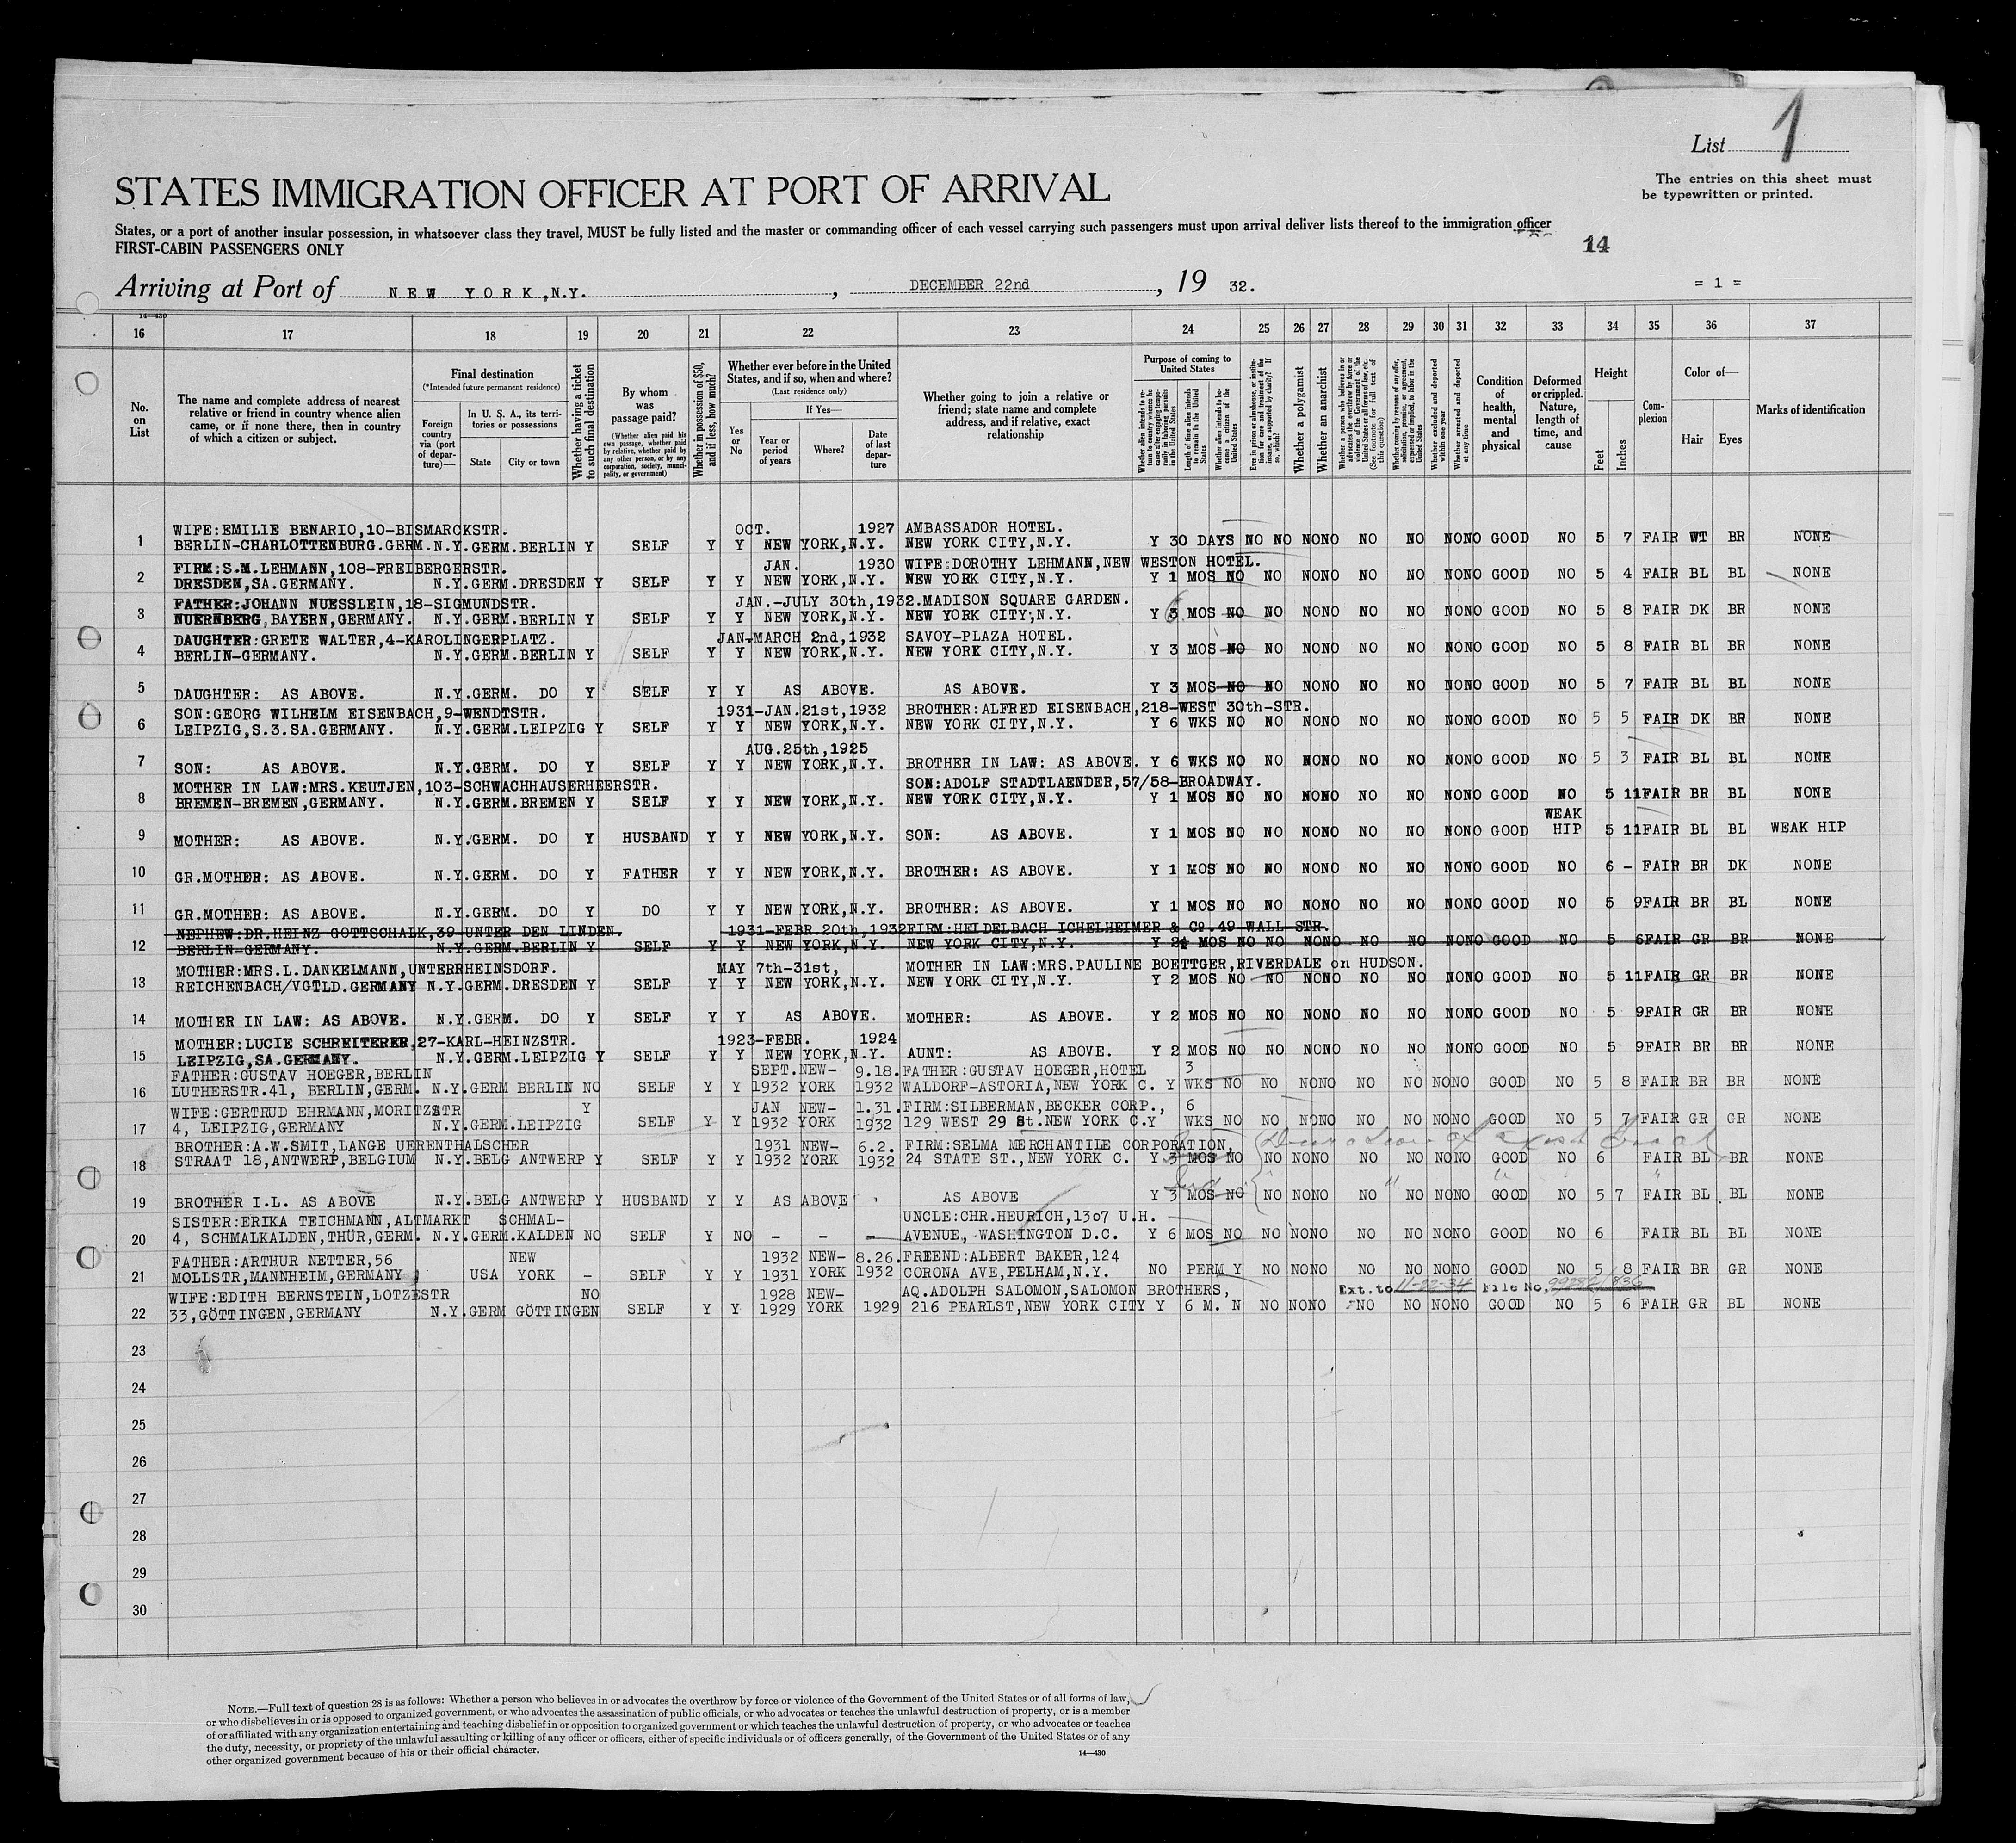 List 1
The entries on this sheet must
be typewritten or printed.
STATES IMMIGRATION OFFICER AT PORT OF ARRIVAL
States, or a port of another insular possession, in whatsoever class they travel, MUST be fully listed and the master or commanding officer of each vessel carrying such passengers must upon arrival deliver lists thereof to the immigration officer
FIRST-CABIN PASSENGERS ONLY
14
Arriving at Port of NEW YORK,N.Y. , DECEMBER 22nd , 19 32. = 1 =
14—430
16 17 18 19 20 21 22 23 24 25 26 27 28 29 30 31 32 33 34 35 36 37
No. on List
The name and complete address of nearest relative or friend in country whence alien came, or if none there, then in country of which a citizen or subject.
Final destination
(*Intended future permanent residence)
Foreign country via (port of departure)—
In U. S. A., its territories or possessions
State
City or town
Whether having a ticket to such final destination
By whom was passage paid?
(Whether alien paid his own passage, whether paid by relative, whether paid by any other person, or by any corporation, society, municipality, or government)
Whether in possession of $50, and if less, how much?
Whether ever before in the United States, and if so, when and where?
(Last residence only)
Yes or No
If Yes—
Year or period of years
Where?
Date of last departure
Whether going to join a relative or friend; state name and complete address, and if relative, exact relationship
Purpose of coming to United States
Whether alien intends to return to country whence he came after engaging temporarily in laboring pursuits in the United States
Length of time alien intends to remain in the United States
Whether alien intends to become a citizen of the United States
Ever in prison or almshouse, or institution for care and treatment of the insane, or supported by charity? If so, which?
Whether a polygamist
Whether an anarchist
Whether a person who believes in or advocates the overthrow by force or violence of the Government of the United States or all forms of law, etc. (See footnote for full text of this question)
Whether coming by reasons of any offer, solicitation, promise, or agreement, expressed or implied, to labor in the United States
Whether excluded and deported within one year
Whether arrested and deported at any time
Condition of health, mental and physical
Deformed or crippled. Nature, length of time, and cause
Height
Feet
Inches
Complexion
Color of—
Hair
Eyes
Marks of identification
WIFE:EMILIE BENARIO,10-BISMARCKSTR. OCT. 1927 AMBASSADOR HOTEL.
1 BERLIN-CHARLOTTENBURG.GERM.N.Y.GERM.BERLIN Y SELF Y Y NEW YORK,N.Y. NEW YORK CITY,N.Y. Y 30 DAYS NO NO NONO NO NO NONO GOOD NO 5 7 FAIR WT BR NONE
FIRM:S.M.LEHMANN,108-FREIBERGERSTR. JAN. 1930 WIFE:DOROTHY LEHMANN,NEW WESTON HOTEL.
2 DRESDEN,SA.GERMANY. N.Y.GERM.DRESDEN Y SELF Y Y NEW YORK,N.Y. NEW YORK CITY,N.Y. Y 1 MOS NO NO NONO NO NO NONO GOOD NO 5 4 FAIR BL BL NONE
FATHER:JOHANN NUESSLEIN,18-SIGMUNDSTR. JAN.-JULY 30th,1932.MADISON SQUARE GARDEN.
3 NUERNBERG,BAYERN,GERMANY. N.Y.GERM.BERLIN Y SELF Y Y NEW YORK,N.Y. NEW YORK CITY,N.Y. Y 3 6 MOS NO NO NONO NO NO NONO GOOD NO 5 8 FAIR DK BR NONE
DAUGHTER:GRETE WALTER,4-KAROLINGERPLATZ. JAN-MARCH 2nd,1932 SAVOY-PLAZA HOTEL.
4 BERLIN-GERMANY. N.Y.GERM.BERLIN Y SELF Y Y NEW YORK,N.Y. NEW YORK CITY,N.Y. Y 3 MOS NO NO NONO NO NO NONO GOOD NO 5 8 FAIR BL BR NONE
5 DAUGHTER: AS ABOVE. N.Y.GERM. DO Y SELF Y Y AS ABOVE. AS ABOVE. Y 3 MOS NO NO NONO NO NO NONO GOOD NO 5 7 FAIR BL BL NONE
SON:GEORG WILHELM EISENBACH,9-WENDTSTR. 1931-JAN.21st,1932 BROTHER:ALFRED EISENBACH,218-WEST 30th-STR.
6 LEIPZIG,S.3.SA.GERMANY. N.Y.GERM.LEIPZIG Y SELF Y Y NEW YORK,N.Y. NEW YORK CITY,N.Y. Y 6 WKS NO NO NONO NO NO NONO GOOD NO 5 5 FAIR DK BR NONE
AUG.25th,1925
7 SON: AS ABOVE. N.Y.GERM. DO Y SELF Y Y NEW YORK,N.Y. BROTHER IN LAW: AS ABOVE. Y 6 WKS NO NO NONO NO NO NONO GOOD NO 5 3 FAIR BL BL NONE
MOTHER IN LAW:MRS.KEUTJEN,103-SCHWACHHAUSERHEERSTR. SON:ADOLF STADTLAENDER,57/58-BROADWAY.
8 BREMEN-BREMEN,GERMANY. N.Y.GERM.BREMEN Y SELF Y Y NEW YORK,N.Y. NEW YORK CITY,N.Y. Y 1 MOS NO NO NONO NO NO NONO GOOD NO 5 11FAIR BR BL NONE
WEAK
9 MOTHER: AS ABOVE. N.Y.GERM. DO Y HUSBAND Y Y NEW YORK,N.Y. SON: AS ABOVE. Y 1 MOS NO NO NONO NO NO NONO GOOD HIP 5 11FAIR BL BL WEAK HIP
10 GR.MOTHER: AS ABOVE. N.Y.GERM. DO Y FATHER Y Y NEW YORK,N.Y. BROTHER: AS ABOVE. Y 1 MOS NO NO NONO NO NO NONO GOOD NO 6 - FAIR BR DK NONE
11 GR.MOTHER: AS ABOVE. N.Y.GERM. DO Y DO Y Y NEW YORK,N.Y. BROTHER: AS ABOVE. Y 1 MOS NO NO NONO NO NO NONO GOOD NO 5 9FAIR BR BL NONE
NEPHEW:DR.HEINZ GOTTSCHALK,39-UNTER DEN LINDEN. 1931-FEBR.20th,1932FIRM:HEIDELBACH ICHELHEIMER & Co.49 WALL STR.
12 BERLIN-GERMANY. N.Y.GERM.BERLIN Y SELF Y Y NEW YORK,N.Y. NEW YORK CITY,N.Y. Y 2 MOS NO NO NONO NO NO NONO GOOD NO 5 6FAIR GR BR NONE
MOTHER:MRS.L.DANKELMANN,UNTERRHEINSDORF. MAY 7th-31st, MOTHER IN LAW:MRS.PAULINE BOETTGER,RIVERDALE on HUDSON.
13 REICHENBACH/VGTLD.GERMANY N.Y.GERM.DRESDEN Y SELF Y Y NEW YORK,N.Y. NEW YORK CITY,N.Y. Y 2 MOS NO NO NONO NO NO NONO GOOD NO 5 11FAIR GR BR NONE
14 MOTHER IN LAW: AS ABOVE. N.Y.GERM. DO Y SELF Y Y AS ABOVE. MOTHER: AS ABOVE. Y 2 MOS NO NO NONO NO NO NONO GOOD NO 5 9FAIR GR BR NONE
MOTHER:LUCIE SCHREITERER,27-KARL-HEINZSTR. 1923-FEBR. 1924
15 LEIPZIG,SA.GERMANY. N.Y.GERM.LEIPZIG Y SELF Y Y NEW YORK,N.Y. AUNT: AS ABOVE. Y 2 MOS NO NO NONO NO NO NONO GOOD NO 5 9FAIR BR BR NONE
FATHER:GUSTAV HOEGER,BERLIN SEPT.NEW- 9.18.FATHER:GUSTAV HOEGER,HOTEL 3
16 LUTHERSTR.41, BERLIN,GERM. N.Y.GERM BERLIN NO SELF Y Y 1932 YORK 1932 WALDORF-ASTORIA,NEW YORK C. Y WKS NO NO NONO NO NO NONO GOOD NO 5 8 FAIR BR BR NONE
WIFE:GERTRUD EHRMANN,MORITZSTR Y JAN NEW- 1.31.FIRM:SILBERMAN,BECKER CORP., 6
17 4, LEIPZIG,GERMANY N.Y.GERM.LEIPZIG SELF Y Y 1932 YORK 1932 129 WEST 29 St.NEW YORK C.Y WKS NO NO NONO NO NO NONO GOOD NO 5 7 FAIR GR GR NONE
BROTHER:A.W.SMIT,LANGE UERENTHALSCHER 1931 NEW- 6.2. FIRM:SELMA MERCHANTILE CORPORATION,
18 STRAAT 18,ANTWERP,BELGIUM N.Y.BELG ANTWERP Y SELF Y Y 1932 YORK 1932 24 STATE ST.,NEW YORK C. Y 3 MOS NO NO NONO NO NO NONO GOOD NO 6 FAIR BL BR NONE
19 BROTHER I.L. AS ABOVE N.Y.BELG ANTWERP Y HUSBAND Y Y AS ABOVE AS ABOVE Y 3 MOS NO NO NONO NO " NO NONO GOOD NO 5 7 FAIR BL BL NONE
SISTER:ERIKA TEICHMANN,ALTMARKT SCHMAL- UNCLE:CHR.HEURICH,1307 U.H.
20 4, SCHMALKALDEN,THÜR,GERM. N.Y.GERM.KALDEN NO SELF Y NO - - - AVENUE, WASHINGTON D.C. Y 6 MOS NO NO NONO NO NO NONO GOOD NO 6 FAIR BL BL NONE
FATHER:ARTHUR NETTER,56 NEW 1932 NEW- 8.26.FRIEND:ALBERT BAKER,124
21 MOLLSTR,MANNHEIM,GERMANY USA YORK - SELF Y Y 1931 YORK 1932 CORONA AVE,PELHAM,N.Y. NO PERM Y NO NONO NO NO NONO GOOD NO 5 8 FAIR BR GR NONE
WIFE:EDITH BERNSTEIN,LOTZESTR NO 1928 NEW- AQ.ADOLPH SALOMON,SALOMON BROTHERS, Ext.to 11-22-34 File No.
22 33,GÖTTINGEN,GERMANY N.Y.GERM GÖTTINGEN SELF Y Y 1929 YORK 1929 216 PEARLST,NEW YORK CITY Y 6 M. N NO NONO NO NO NONO GOOD NO 5 6 FAIR GR BL NONE
23
24
25
26
27
28
29
30
NOTE.—Full text of question 28 is as follows: Whether a person who believes in or advocates the overthrow by force or violence of the Government of the United States or of all forms of law,
or who disbelieves in or is opposed to organized government, or who advocates the assassination of public officials, or who advocates or teaches the unlawful destruction of property, or is a member
of or affiliated with any organization entertaining and teaching disbelief in or opposition to organized government or which teaches the unlawful destruction of property, or who advocates or teaches
the duty, necessity, or propriety of the unlawful assaulting or killing of any officer or officers, either of specific individuals or of officers generally, of the Government of the United States or of any
other organized government because of his or their official character.
14—430